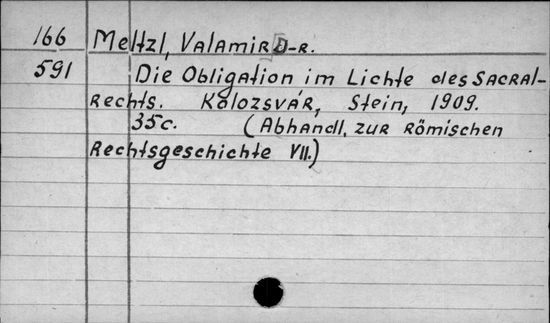 166 Meltzl, Valamir D-r.
591 Die Obligation im Lichte des Sacral-
Rechts. Kolozsvár, Stein, 1909.
35c. (Abhandl. zur Römischen
Rechtsgeschichte VII.)